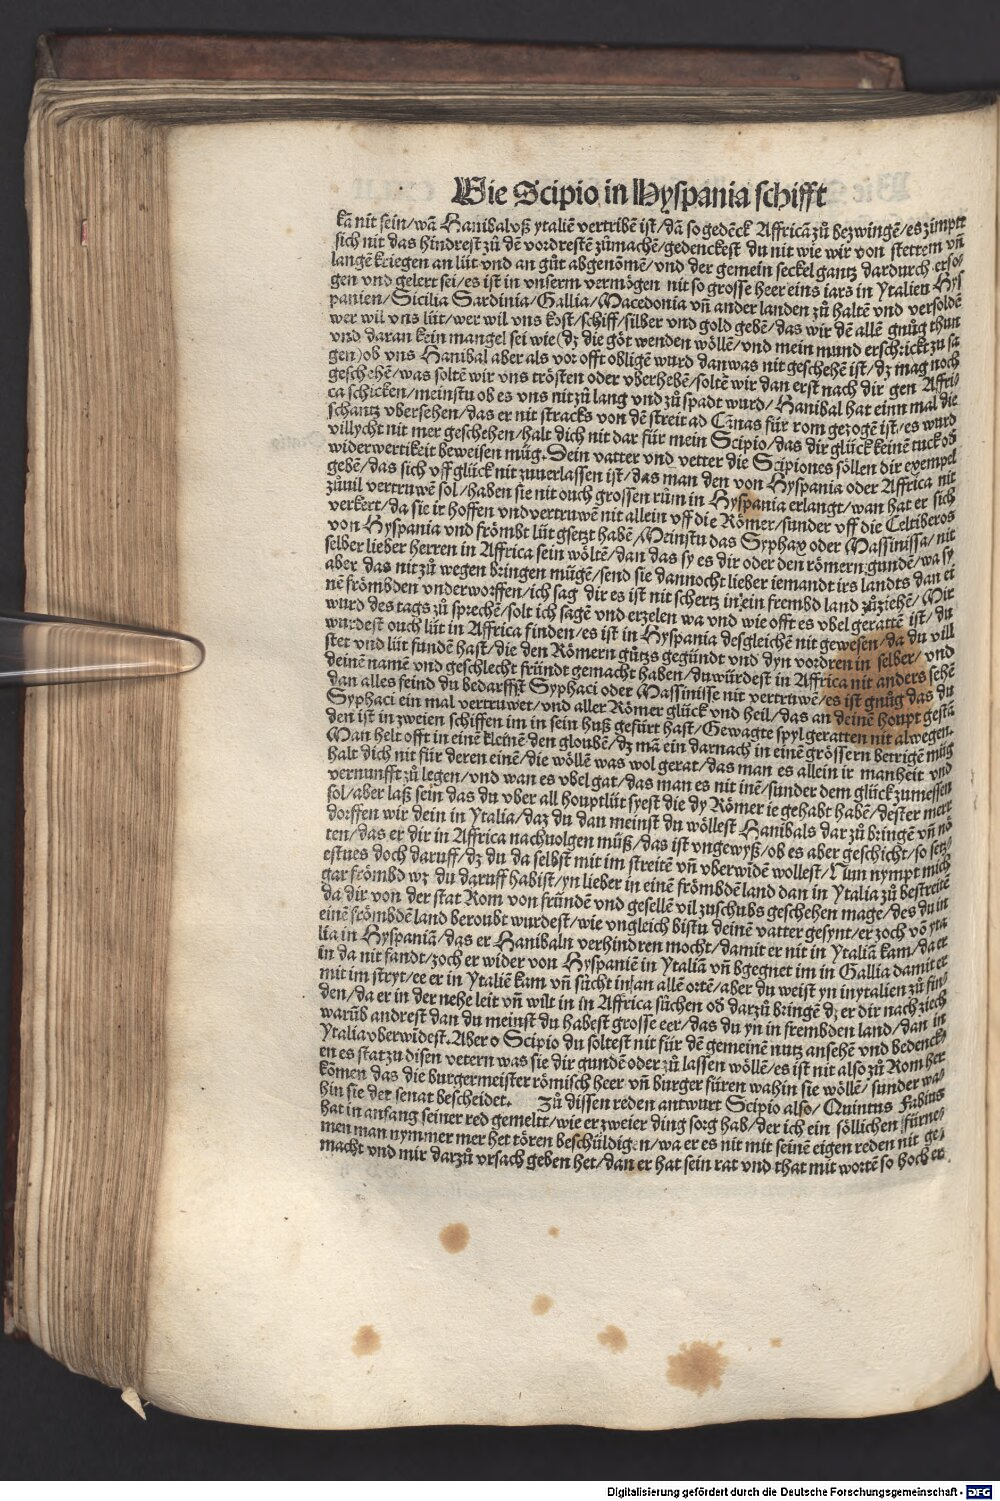 Wie Scipio in Hyspania schifft
kā nit sein/wā Hanibal vß ytaliē vertribē ist/dā so gedēck Affricā zů bezwingē/es zimpt
sich nit das hindrest zů dē vordrestē zůmachē/gedenckest du nit wie wir von stettem vñ
langē kriegen an lüt vnd an gůt abgenōmē/vnd der gemein seckel gantz dardurch erso⸗
gen vnd gelert sei/es ist in vnserm vermögen nit so grosse heer eins iars in Ytalien Hys
panien/Sicilia Sardinia/Gallia/Macedonia vñ ander landen zů haltē vnd versoldē
wer wil vns lüt/wer wil vns kost/schiff/silber vnd gold gebē/das wir dē allē gnůg thun
vnd daran kein mangel sei wie(dz die göt wenden wöllē/vnd mein mund erschrickt zu sa
gen)ob vns Hanibal aber als vor offt obligē wurd dan was nit geschehē ist/dz mag noch
geschehē/was soltē wir vns trösten oder vberhebē/soltē wir dan erst nach dir gen Affri⸗
ca schicken/meinstu ob es vns nit zů lang vnd zů spadt wurd/Hanibal hat einn mal die
schantz vbersehen/das er nit stracks von dē streit ad Cānas für rom gezogē ist/es wurd
villycht nit mer geschehen/halt dich nit dar für mein Scipio/das dir glück keinē tuck oď
widerwertikeit beweisen müg. Dein vatter vnd vetter die Scipiones söllen dir exempel
gebē/das sich vff glück nit zuuerlassen ist/das man den von Hyspania oder Affrica nit
zůuil vertruwē sol/haben sie nit ouch grossen rům in Hyspania erlangt/wan hat er sich
verkert/da sie ir hoffen vnd vertruwē nit allein vff die Römer/sunder vff die Celtiberos
von Hyspania vnd frömbt lüt gsetzt habē/Meinstu das Syphax oder Massinissa/nit
selber lieber herren in Affrica sein wöltē/dan das sy es dir oder den römern gundē/wa sy
aber das nit zů wegen bringen mügē/send sie dannocht lieber iemandt irs landts dan ei
nē frömbden vnderworffen/ich sag dir es ist nit schertz in ein frembd land zůziehē/Mir
wurd des tags zů sprechē/solt ich sagē vnd erzelen wa vnd wie offt es vbel gerattē ist/du
wurdest ouch lüt in Affrica finden/es ist in Hyspania desgleichē nit gewesen/da du vill
stet vnd lüt fundē hast/die den Römern gůtzs gegündt vnd dyn vordren in selber/vnd
deinē namē vnd geschlecht fründt gemacht haben/du würdest in Affrica nit anders sehē
dan alles feind du bedarffst Syphaci oder Massinisse nit vertruwē/es ist gnůg das du
Syphaci ein mal vertruwet/vnd aller Römer glück vnd heil/das an deinē houpt gestā
den ist in zweien schiffen im in sein huß gefürt hast/Gewagte spyl geratten nit alwegen.
Man helt offt in einē kleinē den gloubē/dz mā ein darnach in einē grössern betriegē müg
halt dich nit für deren einē/die wöllē was wol gerat/das man es allein ir manheit vnd
vernunfft zů legen/vnd wan es vbel gat/das man es nit inē/sunder dem glück zumessen
sol/aber laß sein das du vber all houptlüt syest die dy Römer ie gehabt habē/dester merr
dorffen wir dein in Ytalia/daz du dan meinst du wöllest Hanibals dar zů bringē vñ nö
ten/das er dir in Affrica nachuolgen müß/das ist vngewyß/ob es aber geschicht/so setz⸗
estu es doch daruff/dz du da selbst mit im streitē vñ vberwīdē wollest/Nun nympt mich
gar frömbd wz du daruff habist/yn lieber in einē frömbdē land dan in Ytalia zů bestreitē
da dir von der stat Rom von fründē vnd gesellē vil zuschubs geschehen mage/des du in
einē frömbdē land beroubt wurdest/wie vngleich bistu deinē vatter gesynt/er zoch vō yta
lia in Hyspaniā/das er Hanibaln verhindren mocht/damit er nit in Ytaliā kam/da er
in da nit fandt/zoch er wider von Hyspaniē in Ytaliā vñ bgegnet im in Gallia damit er
mit im stryt/ee er in Ytaliē kam vñ sücht in an allē ortē/aber du weist yn in ytalien zů fin⸗
den/da er in der nehe leit vñ wilt in in Affrica süchen oď darzů bringē dz er dir nach ziech
warūb andrest dan du meinst du habest grosse eer/das du yn in frembden land/dan in
Ytalia vberwīdest. Aber o Scipio du soltest nit für dē gemeinē nutz ansehē vnd bedenck⸗
en es stat zu disen vetern was sie dir gundē oder zů lassen wöllē/es ist nit also zů Rom her
kōmen das die burgermeister römisch heer vñ burger füren wahin sie wöllē/sunder wa⸗
hin sie der senat bescheidet. Zů dissen reden antwurt Scipio also/Quintus Fabius
hat in anfang seiner red gemelt/wie er zweier ding sorg hab/der ich ein söllichen fürne⸗
men man nymmer mer het tören beschüldigen/wa er es nit mit seinē eigen reden nit ge⸗
macht vnd mir darzů vrsach geben het/dan er hat sein rat vnd that mit wortē so hoch er
Digitalisierung gefördert durch die Deutsche Forschungsgemeinschaft - DFG